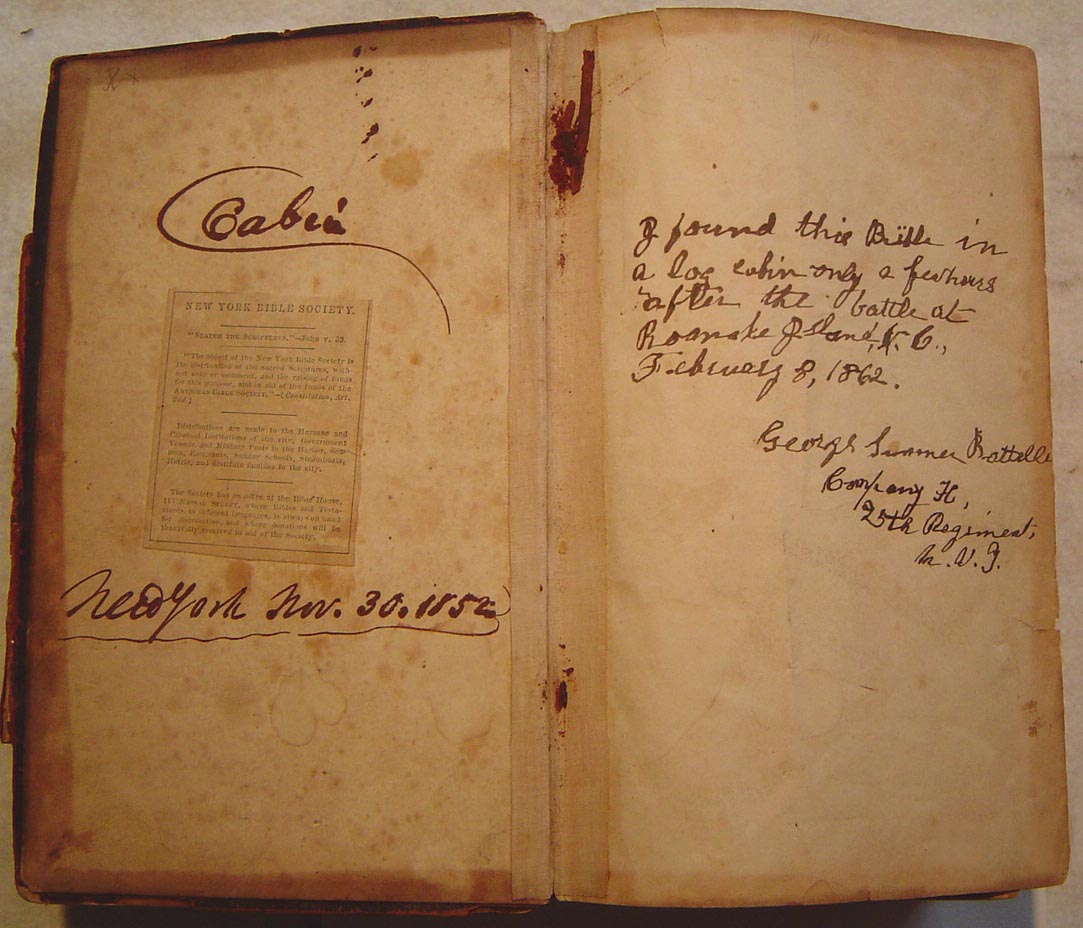 Cabin
NEW YORK BIBLE SOCIETY.
"SEARCH THE SCRIPTURES."—John v. 39.
"The object of the New York Bible Society is
the distribution of the sacred Scriptures, with-
out note or comment, and the raising of funds
for this purpose, and in aid of the funds of the
AMERICAN BIBLE SOCIETY."—[Constitution, Art.
2nd.]
Distributions are made to the Humane and
Criminal Institutions of the city, Government
Vessels and Military Posts in the Harbor, Sea-
men, Emigrants, Sunday Schools, Steamboats,
Hotels, and destitute families in the city.
The Society has an office at the Bible House,
NASSAU STREET, where Bibles and Testa-
ments, in different languages, is always on hand
for distribution, and where donations will be
thankfully received in aid of the Society.
New York Nov. 30. 1852
I found this Bible in
a log cabin only a few hours
after the battle at
Roanoke Island, N. C.,
February 8, 1862.
George Sumner
Company H,
25th Regiment,
M. V. I.